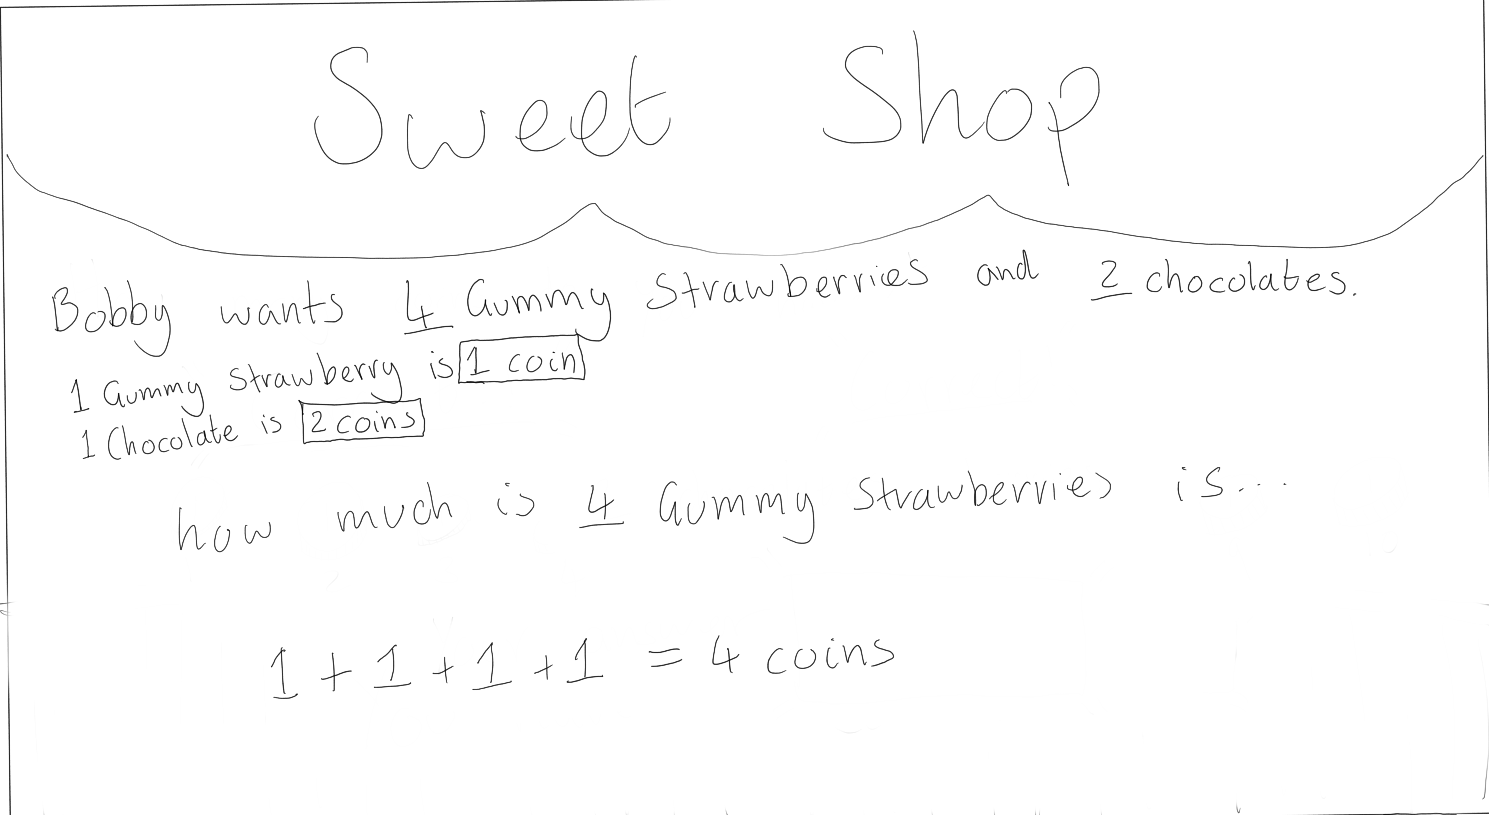 Sweet Shop
Bobby wants 4 Gummy Strawberries and 2 chocolates.
1 Gummy Strawberry is 1 coin
1 Chocolate is 2 coins
how much is 4 Gummy Strawberries is...
1 + 1 + 1 + 1 = 4 coins